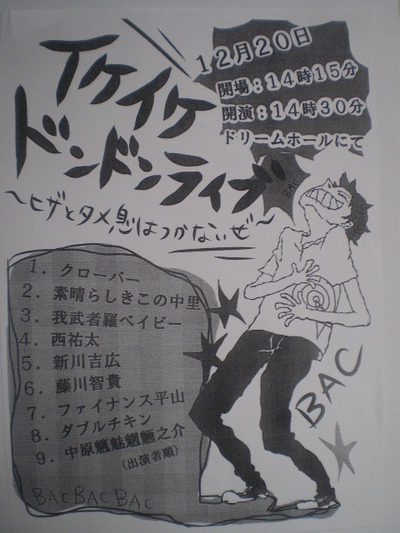 イケイケ
ドンドンライブ
～ヒザとタメ息はつかないぜ～
12月20日
開場：14時15分
開演：14時30分
ドリームホールにて
1．クローバー
2．素晴らしきこの中里
3．我武者羅ベイビー
4．西祐太
5．新川吉広
6．藤川智貴
7．ファイナンス平山
8．ダブルチキン
9．中原魑魅魍魎之介
（出演者順）
BAC BAC BAC
BAC
BAC